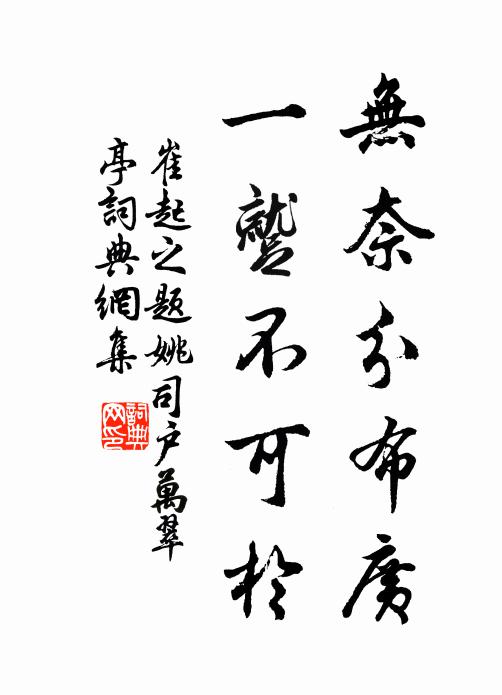 無奈分布廣
一不可於
崔起之題姚司戶萬翠
亭詞典網集
詞典
网印